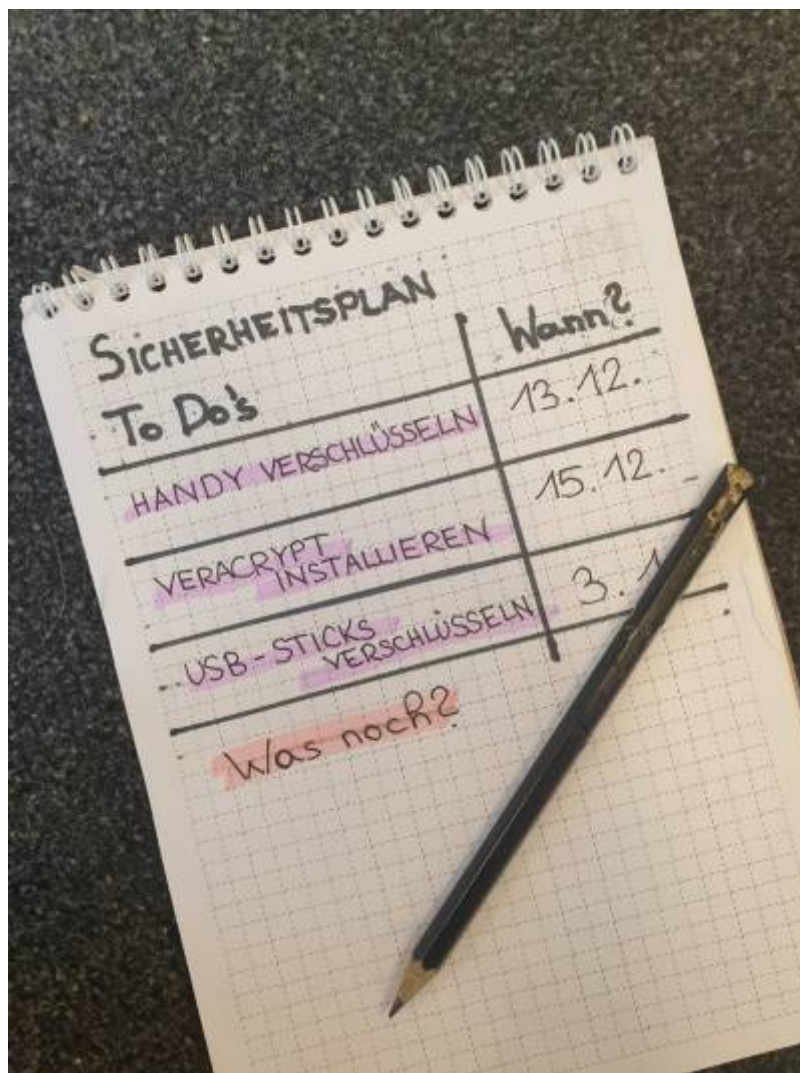 SICHERHEITSPLAN
To Do's
Wann?
HANDY VERSCHLÜSSELN
13.12.
VERACRYPT
INSTALLIEREN
15.12.
USB-STICKS
VERSCHLÜSSELN
3.1
Was noch?